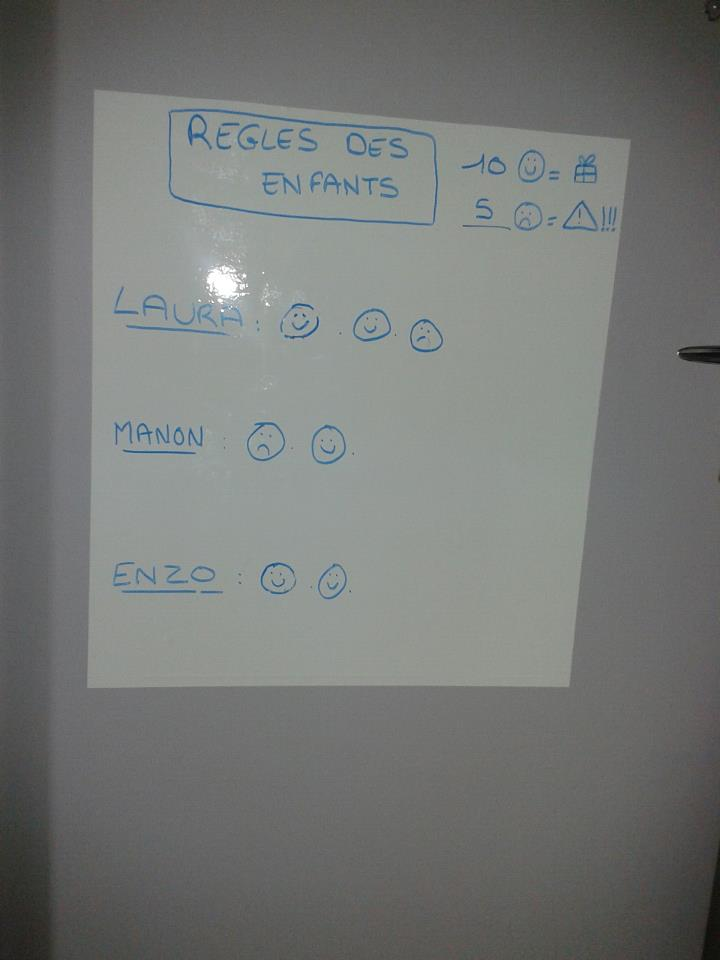 REGLES DES
ENFANTS
10 ☺ = 🎁
5 ☹ = ⚠!!!
LAURA : ☺ . ☺ . ☹
MANON : ☹ . ☺ .
ENZO : ☺ . ☺ .